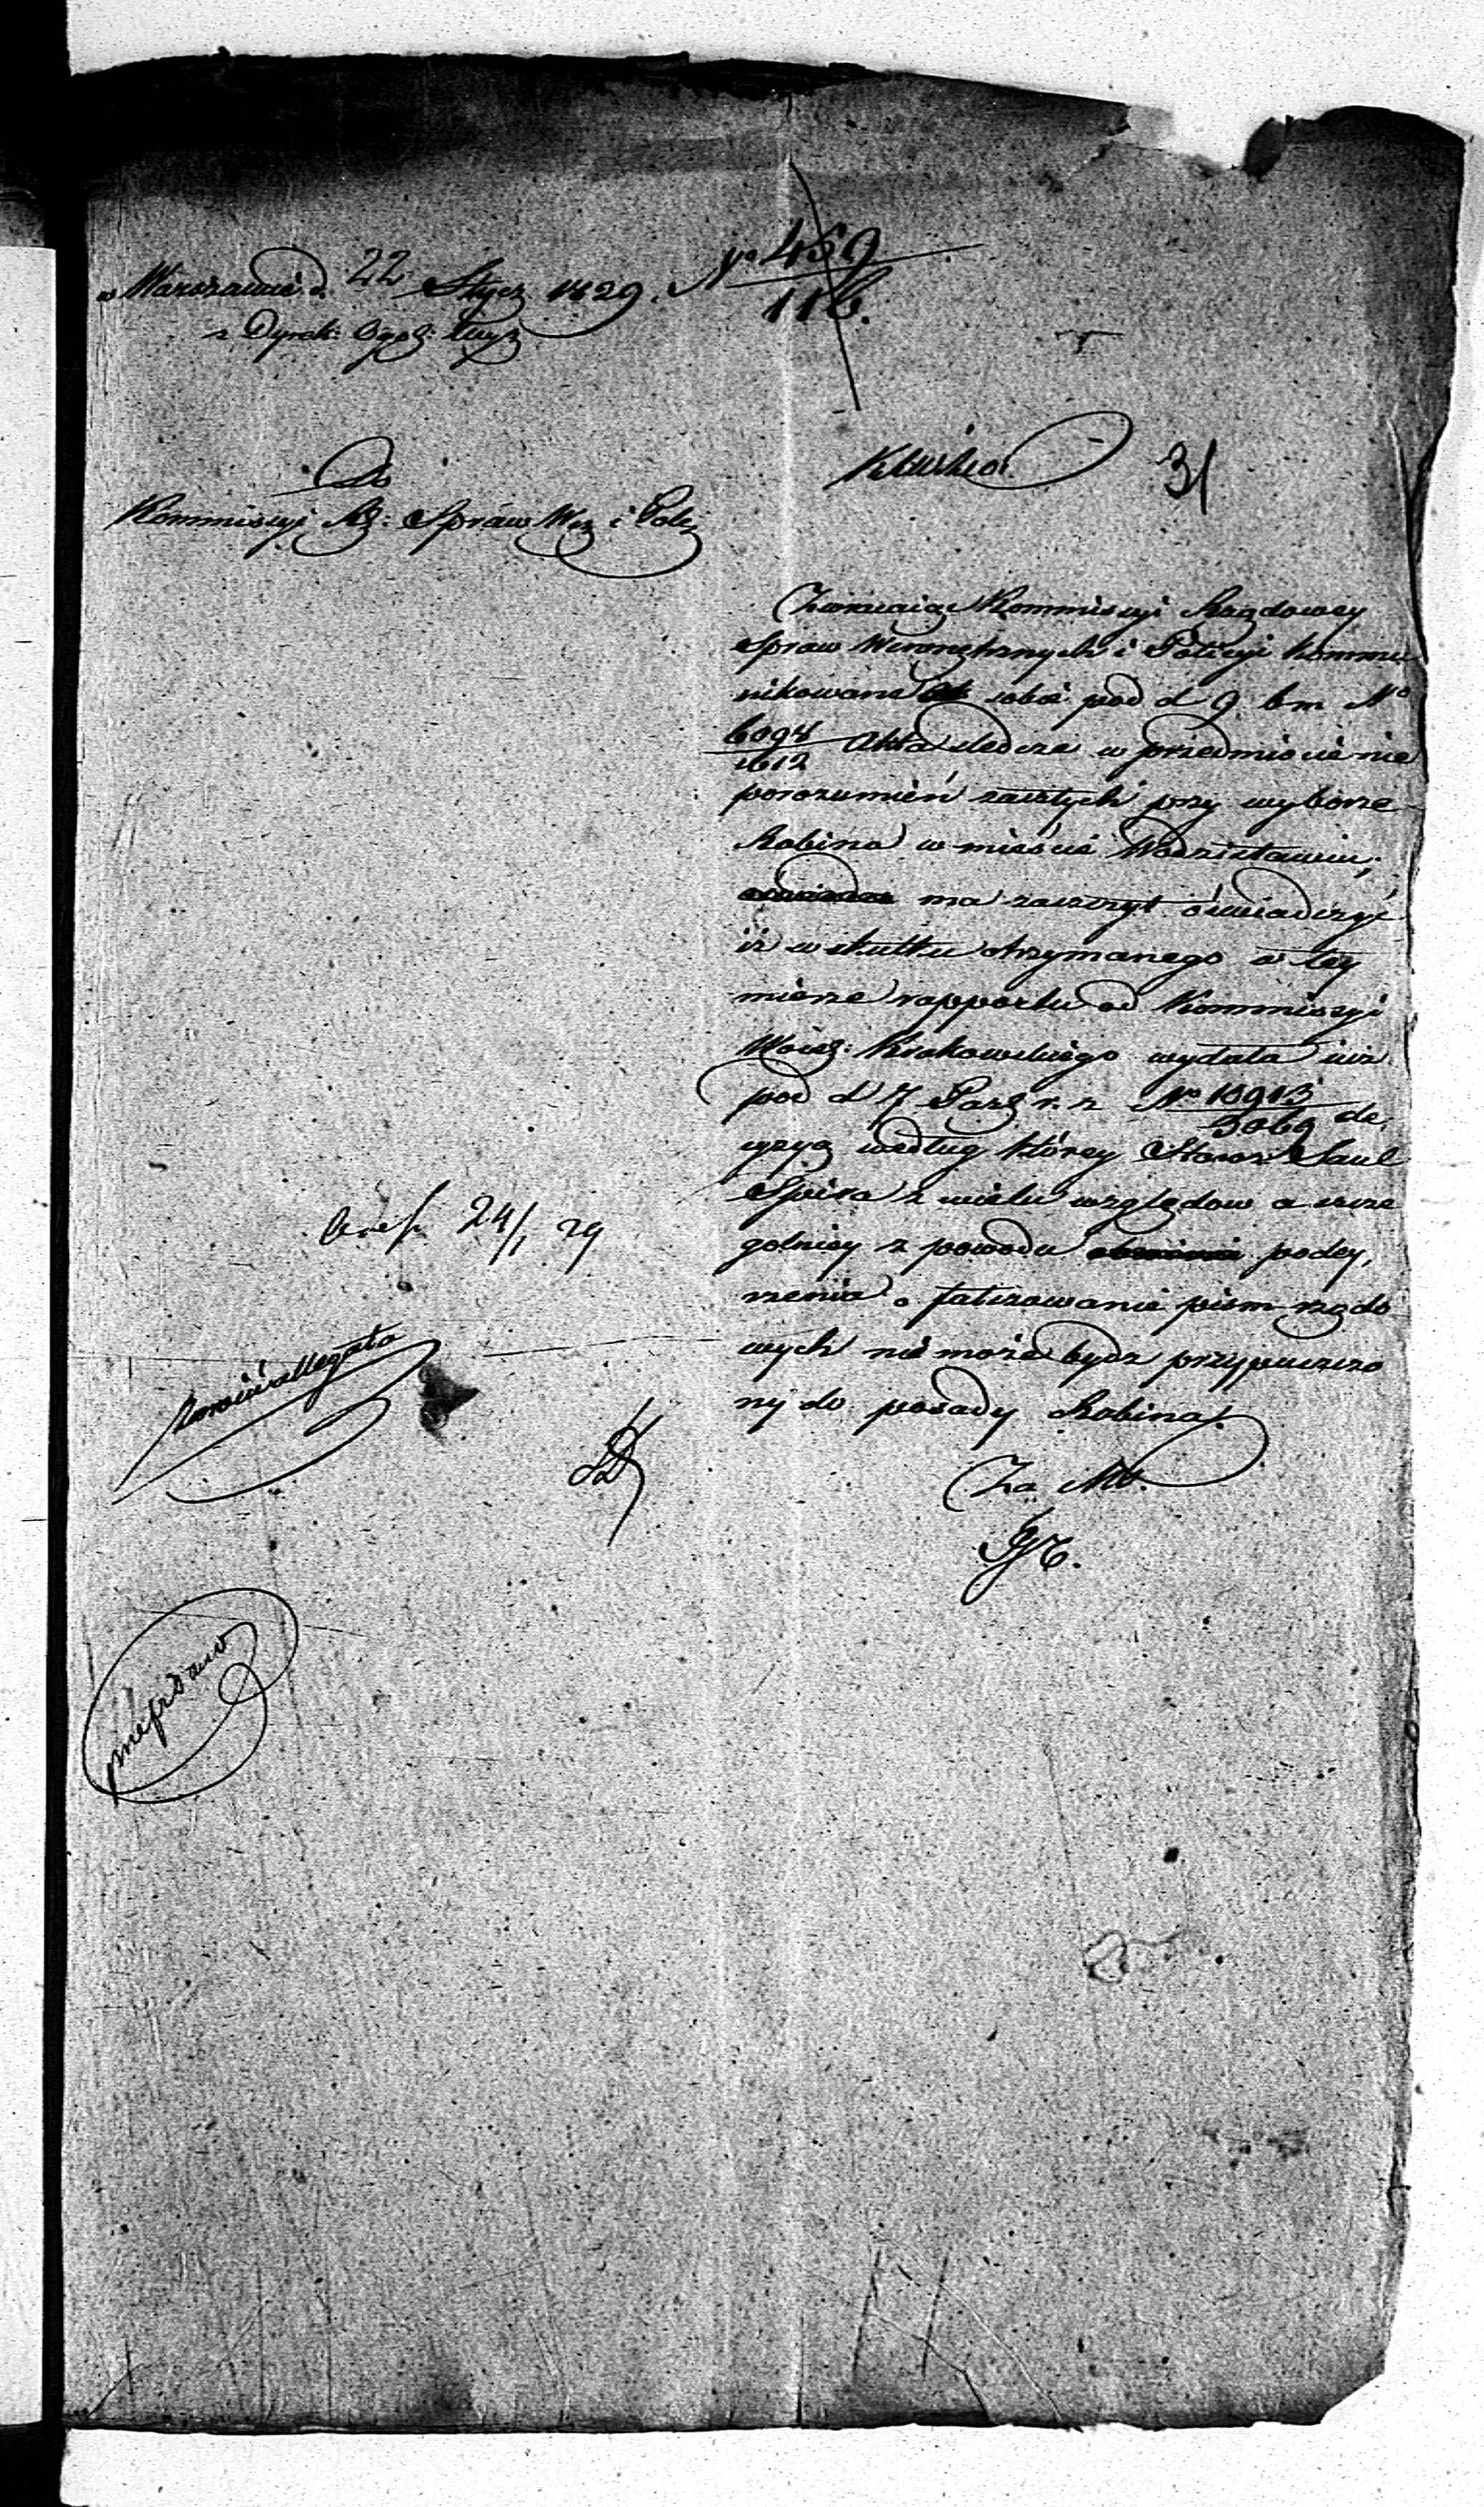 w Warszawie d. 22 Stycz 1829. No 459
116.
z Dyrek: Ogol: Wyz
Do
Kommissyi Rz: Spraw We i Polic
31
Zwracaiąc Kommissyi Rządowey
Spraw Wewnętrznych i Policyi kommu
nikowane sobie pod d 9 b m No
6094/1612 Akta śledcze w przedmiocie nie
porozumień zaszłych przy wyborze
Rabina w mieście Wodzisławiu,
ma zaszczyt oświadczyć
iż w skutku otrzymanego w tey
mierze rapportu od Kommissyi
Woiew: Krakowskiego wydała iuż
pod d 7 Paźz r. z No 10913/3069 de,
cyzyą według którey Staroz: Saul
Spira z wielu względow a szcze
golniey z powodu podey,
rzenia o fałszowanie pism rządo
wych nie może bydz przypuszczo
ny do posady Rabina.
Za Mt.
24/1 29